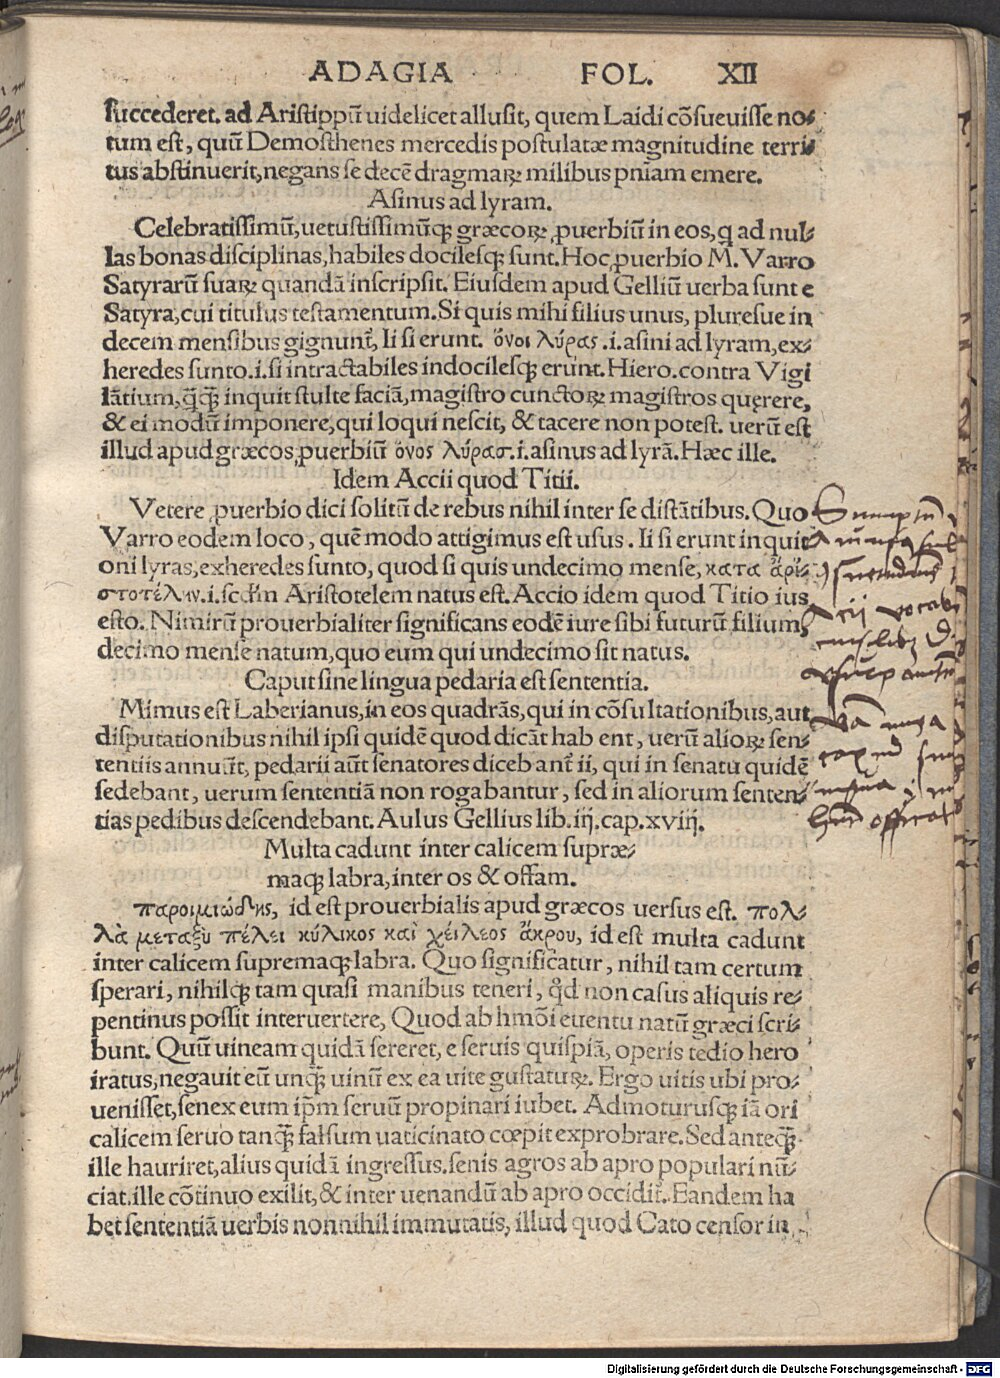 ADAGIA FOL. XII
succederet. ad Aristippū uidelicet allusit, quem Laidi cōsueuisse no⸗
tum est, quū Demosthenes mercedis postulatæ magnitudine terri⸗
tus abstinuerit, negans se decē dragmaꝝ milibus pn̄iam emere.
Asinus ad lyram.
Celebratissimū, uetustissimūqꝫ græcoꝝ ꝓuerbiū in eos, q ad nul⸗
las bonas disciplinas, habiles docilesqꝫ sunt. Hoc ꝓuerbio M. Varro
Satyrarū suaꝝ quandā inscripsit. Eiusdem apud Gelliū uerba sunt e
Satyra, cui titulus testamentum. Si quis mihi filius unus, pluresue in
decem mensibus gignunt᷑, Ii si erunt. ὄνοι λύρας .i. asini ad lyram, ex⸗
heredes sunto .i. si intractabiles indocilesqꝫ erunt. Hiero. contra Vigi
lātium, q̄q̄ꝫ inquit stulte faciā, magistro cunctoꝝ magistros quęrere,
& ei modū imponere, qui loqui nescit, & tacere non potest. uerū est
illud apud græcos ꝓuerbiū ὄνος λύρασ .i. asinus ad lyrā. Hæc ille.
Idem Accii quod Titii.
Vetere ꝓuerbio dici solitū de rebus nihil inter se distātibus. Quo
Varro eodem loco, quē modo attigimus est usus. Ii si erunt inquit
oni lyras, exheredes sunto, quod si quis undecimo mense, κατα ἀρι⸗
στοτέλην .i. scd̄m Aristotelem natus est. Accio idem quod Titio ius
esto. Nimirū prouerbialiter significans eodē iure sibi futurū filium,
decimo mense natum, quo eum qui undecimo sit natus.
Caput sine lingua pedaria est sententia.
Mimus est Laberianus, in eos quadrās, qui in cōsultationibus, aut
disputationibus nihil ipsi quidē quod dicāt hab ent, uerū alioꝝ sen⸗
tentiis annuūt, pedarii aūt senatores diceb ant᷑ ii, qui in senatu quidē
sedebant, uerum sententiā non rogabantur, sed in aliorum senten⸗
tias pedibus descendebant. Aulus Gellius lib. iij. cap. xviij.
Multa cadunt inter calicem supræ⸗
maqꝫ labra, inter os & offam.
παροιμιώδης, id est prouerbialis apud græcos uersus est. πολ⸗
λὰ μεταξὺ πέλει κύλικος καὶ χείλεος ἄκρου, id est multa cadunt
inter calicem supremaqꝫ labra. Quo significatur, nihil tam certum
sperari, nihilqꝫ tam quasi manibus teneri, qd̄ non casus aliquis re⸗
pentinus possit interuertere, Quod ab hmōi euentu natū græci scri⸗
bunt. Quū uineam quidā sereret, e seruis quispiā, operis tedio hero
iratus, negauit eū unq̄ꝫ uinū ex ea uite gustatuꝝ. Ergo uitis ubi pro⸗
uenisset, senex eum ip̄m seruū propinari iubet. Admoturusqꝫ iā ori
calicem seruo tanq̄ꝫ falsum uaticinato cœpit exprobrare. Sed anteq̄ꝫ
ille hauriret, alius quidā ingressus. senis agros ab apro populari nū⸗
ciat. ille cōtinuo exilit, & inter uenandū ab apro occidit᷑. Eandem ha
bet sententiā uerbis nonnihil immutatis, illud quod Cato censor in
Digitalisierung gefördert durch die Deutsche Forschungsgemeinschaft - DFG